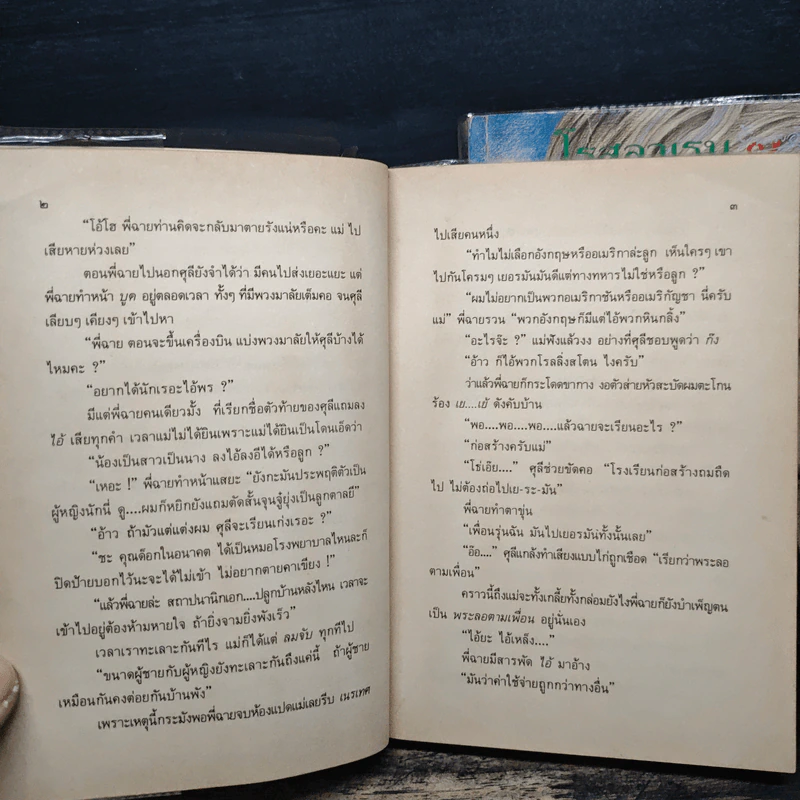 โรสลาเรน
๒
“โอ้โฮ พี่ฉายท่านคิดจะกลับมาตายรังแน่หรือคะ แม่ ไป
เสียหายห่วงเลย”
ตอนพี่ฉายไปนอกศุลียังจำได้ว่า มีคนไปส่งเยอะแยะ แต่
พี่ฉายทำหน้า บูด อยู่ตลอดเวลา ทั้งๆ ที่มีพวงมาลัยเต็มคอ จนศุลี
เลียบๆ เคียงๆ เข้าไปหา
“พี่ฉาย ตอนจะขึ้นเครื่องบิน แบ่งพวงมาลัยให้ศุลีบ้างได้
ไหมคะ ?”
“อยากได้นักเรอะไอ้พร ?”
มีแต่พี่ฉายคนเดียวมั้ง ที่เรียกชื่อตัวท้ายของศุลีแถมลง
ไอ้ เสียทุกคำ เวลาแม่ไม่ได้ยินเพราะแม่ได้ยินเป็นโดนเอ็ดว่า
“น้องเป็นสาวเป็นนาง ลงไอ้ลงอีได้หรือลูก ?”
“เหอะ !” พี่ฉายทำหน้าแสยะ “ยังกะมันประพฤติตัวเป็น
ผู้หญิงนักนี่ ดู....ผมก็หยิกยังแถมตัดสั้นจุนจู๋ยุ่งเป็นลูกตาลยี”
“อ้าว ถ้ามัวแต่แต่งผม ศุลีจะเรียนเก่งเรอะ ?”
“ชะ คุณด็อกในอนาคต ได้เป็นหมอโรงพยาบาลไหนละก็
ปิดป้ายบอกไว้นะจะได้ไม่เข้า ไม่อยากตายคาเขียง !”
“แล้วพี่ฉายล่ะ สถาปนานิกเอก....ปลูกบ้านหลังไหน เวลาจะ
เข้าไปอยู่ต้องห้ามหายใจ ถ้ายิ่งจามยิ่งพังเร็ว”
เวลาเราทะเลาะกันทีไร แม่ก็ได้แต่ ลมจับ ทุกทีไป
“ขนาดผู้ชายกับผู้หญิงยังทะเลาะกันถึงแค่นี้ ถ้าผู้ชาย
เหมือนกันคงต่อยกันบ้านพัง”
เพราะเหตุนี้กระมังพอพี่ฉายจบห้องแปดแม่เลยรีบ เนรเทศ
๓
ไปเสียคนหนึ่ง
“ทำไมไม่เลือกอังกฤษหรืออเมริกาล่ะลูก เห็นใครๆ เขา
ไปกันโครมๆ เยอรมันมันดีแต่ทางทหารไม่ใช่หรือลูก ?”
“ผมไม่อยากเป็นพวกอเมริกาชันหรืออเมริกัญชา นี่ครับ
แม่” พี่ฉายรวน “พวกอังกฤษก็มีแต่ไอ้พวกหินกลิ้ง”
“อะไรจ๊ะ ?” แม่ฟังแล้วงง อย่างที่ศุลีชอบพูดว่า ก๊ง
“อ้าว ก็ไอ้พวกโรลลิ่งสโตน ไงครับ”
ว่าแล้วพี่ฉายก็กระโดดขากาง งอตัวส่ายหัวสะบัดผมตะโกน
ร้อง เย....เย้ ดังคับบ้าน
“พอ....พอ....พอ....แล้วฉายจะเรียนอะไร ?”
“ก่อสร้างครับแม่”
“โซ่เอ๊ย....” ศุลีช่วยขัดคอ “โรงเรียนก่อสร้างถมถืด
ไป ไม่ต้องถ่อไปเย-ระ-มัน”
พี่ฉายทำตาขุ่น
“เพื่อนรุ่นฉัน มันไปเยอรมันทั้งนั้นเลย”
“อ๊อ....” ศุลีแกล้งทำเสียงแบบไก่ถูกเชือด “เรียกว่าพระลอ
ตามเพื่อน”
คราวนี้ถึงแม่จะทั้งเกลี้ยทั้งกล่อมยังไงพี่ฉายก็ยังบำเพ็ญตน
เป็น พระลอตามเพื่อน อยู่นั่นเอง
“ไอ้ยะ ไอ้เหล็ง....”
พี่ฉายมีสารพัด ไอ้ มาอ้าง
“มันว่าค่าใช้จ่ายถูกกว่าทางอื่น”